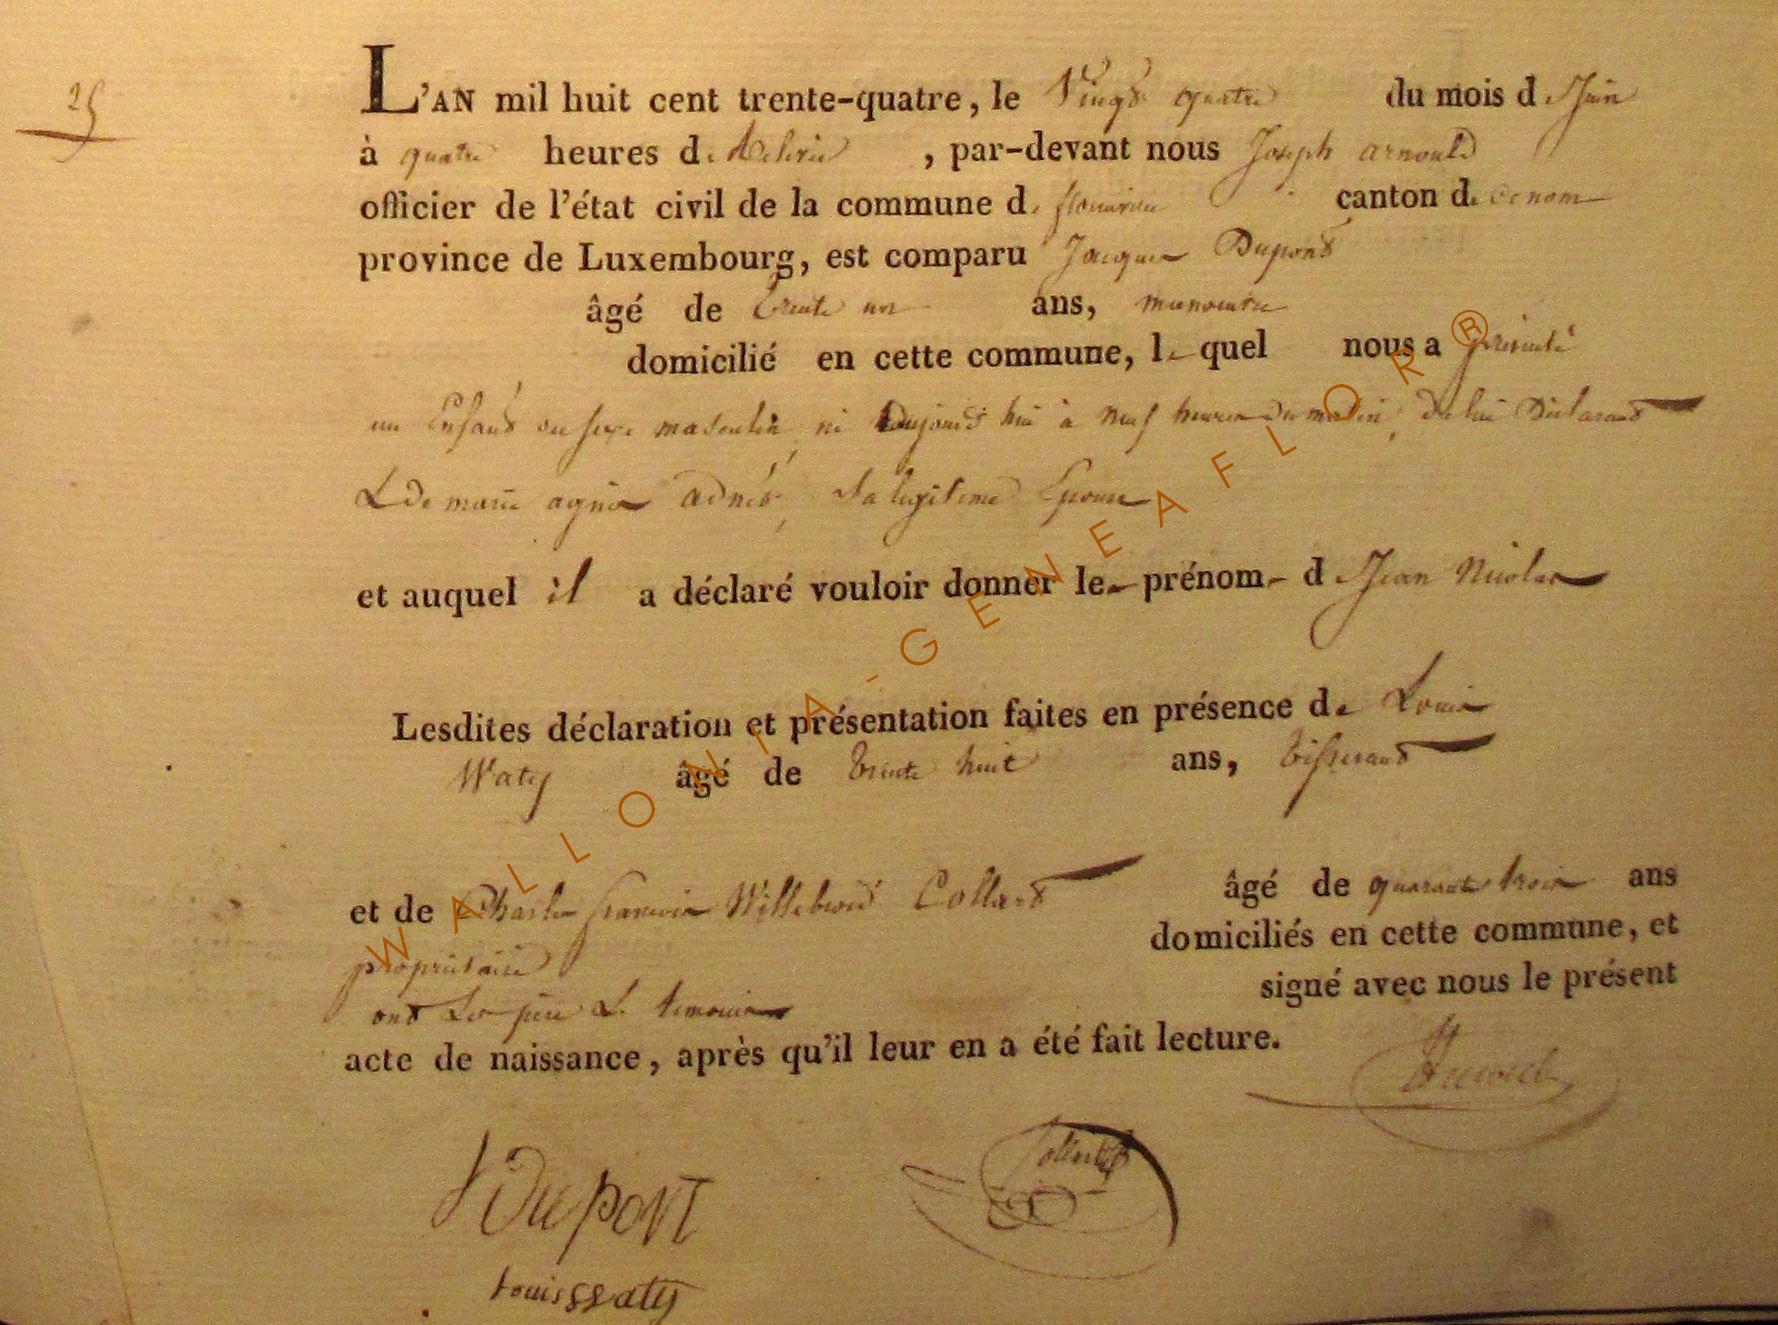 25
L'AN mil huit cent trente-quatre, le Vingt quatre du mois de Juin
à quatre heures de Relevée, par-devant nous Joseph arnould
officier de l'état civil de la commune de canton de
province de Luxembourg, est comparu Jacques Dupont
âgé de trente un ans, manouvre
domicilié en cette commune, le quel nous a présenté
un Enfant du sexe masculin, né aujourd hui à neuf heures du matin, de lui Déclarant
& de marie agnes adnét, Sa legitime Epouse
et auquel il a déclaré vouloir donner les prénoms de Jean Nicolas
Lesdites déclaration et présentation faites en présence de Louis
Waty âgé de trente huit ans, tisserand
et de Charles francois Willebrord Collard âgé de quarante trois ans
propriétaire domiciliés en cette commune, et
ont Les père & temoins signé avec nous le présent
acte de naissance, après qu'il leur en a été fait lecture.
J Dupont
Louis Waty
WALLONIA-GENEAFLOR®